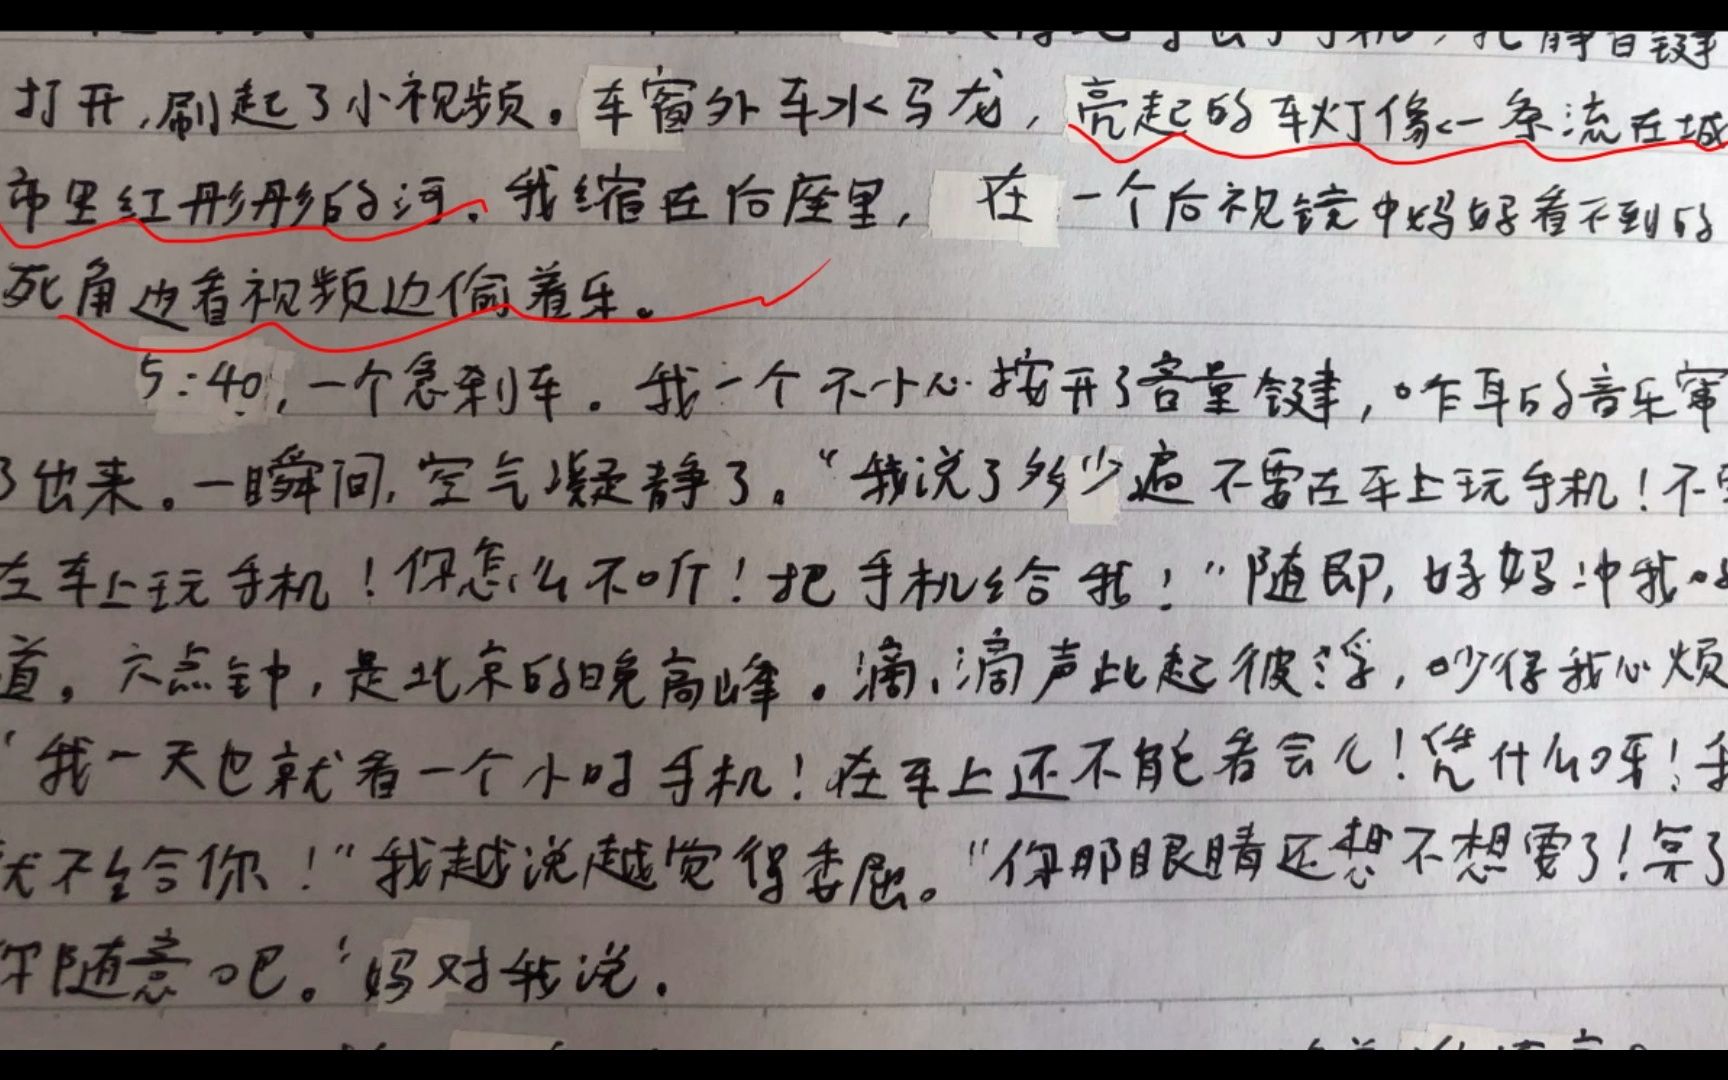 手机，把静音键
打开，刷起了小视频。车窗外车水马龙，亮起的车灯像一条流在城
市里红彤彤的河。我缩在后座里，在一个后视镜中妈妈看不到的
死角边看视频边偷着乐。
5:40，一个急刹车。我一个不小心按开了音量键，炸耳的音乐窜
了出来。一瞬间，空气凝静了。“我说了多少遍不要在车上玩手机！不要
在车上玩手机！你怎么不听！把手机给我！”随即，妈妈冲我
道。六点钟，是北京的晚高峰。滴滴声此起彼浮，吵得我心烦
“我一天也就看一个小时手机！在车上还不能看会儿！凭什么呀！我
就不给你！”我越说越觉得委屈。“你那眼睛还想不想要了！算了
你随意吧。”妈对我说.